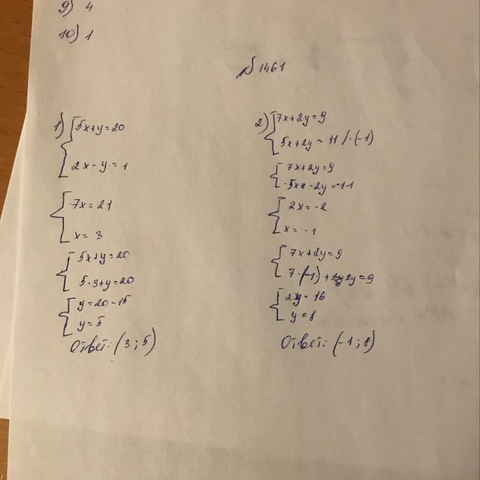 9) 4
10) 1
№ 1461
1) 5x+y=20
2x-y=1
7x=21
x=3
5x+y=20
5·3+y=20
y=20-15
y=5
Ответ: (3;5)
2) 7x+2y=9
5x+2y=11 /·(-1)
7x+2y=9
-5x-2y=-11
2x=-2
x=-1
7x+2y=9
7·(-1)+2y=9
2y=16
y=8
Ответ: (-1;8)